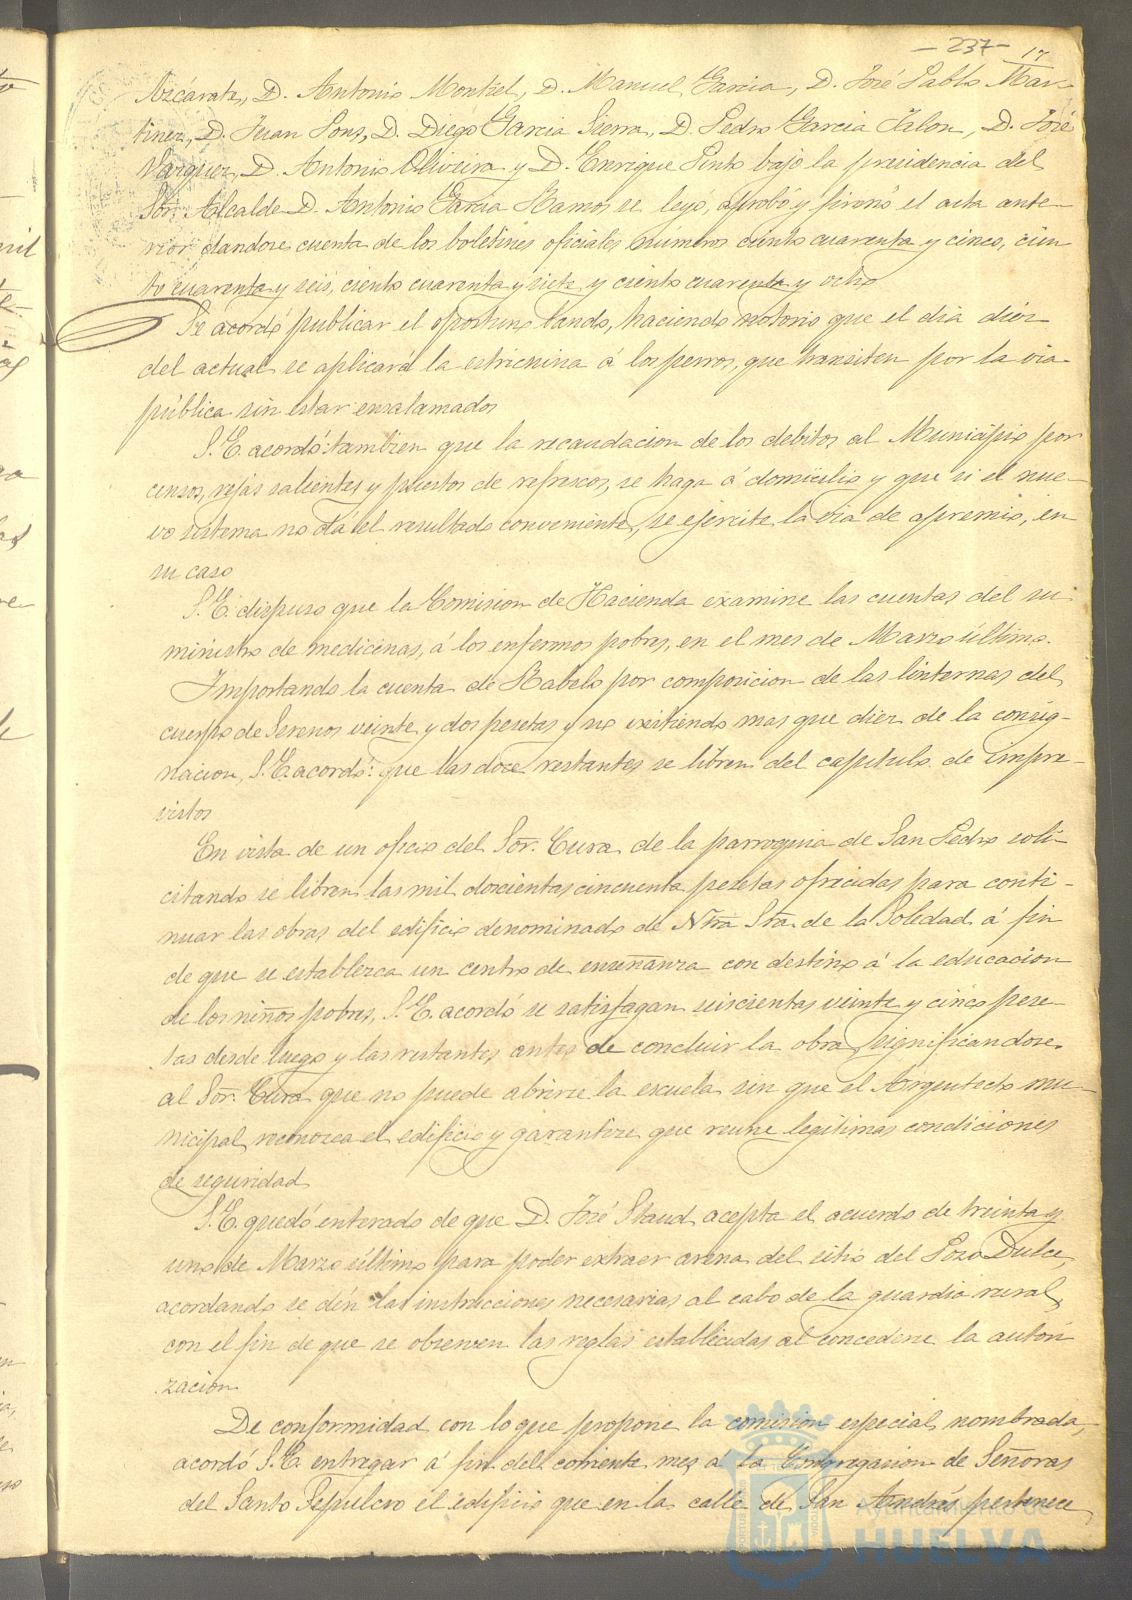 — 237 — 17
Azcárate, D. Antonio Montiel, D. Manuel Garcia, D. José Pablo Mar-
tinez, D. Juan Pons, D. Diego Garcia Sierra, D. Pedro Garcia Jalon, D. José
Vazquez, D. Antonio Oliveira y D. Enrique Pinto bajo la presidencia del
Sor. Alcalde D. Antonio Garcia Ramos se leyó, aprobó y firmó el acta ante-
rior dandose cuenta de los boletines oficiales números ciento cuarenta y cinco, cien
to cuarenta y seis, ciento cuarenta y siete y ciento cuarenta y ocho
Se acordó publicar el oportuno bando, haciendo notorio que el dia diez
del actual se aplicará la estricnina á los perros, que transiten por la via
pública sin estar enxalamados
S. E. acordó: tambien que la recaudacion de los debitos al Municipio por
censos, rejas salientes y puestos de refrescos, se haga á domicilio y que si el nue-
vo sistema no dá el resultado conveniente, se ejercite la via de apremio, en
su caso
S. E. dispuso que la Comision de Hacienda examine las cuentas del su
ministro de medicinas, á los enfermos pobres, en el mes de Marzo último.
Importando la cuenta de Rabelo por composicion de las linternas del
cuerpo de Serenos veinte y dos pesetas y no existiendo mas que diez de la consig-
nacion, S. E. acordó: que las doce restantes se libren del capitulo de impre-
vistos
En vista de un oficio del Sor. Cura de la parroquia de San Pedro soli-
citando se libren las mil doscientas cincuenta pesetas ofrecidas para conti-
nuar las obras del edificio denominado de Ntra Sra. de la Soledad á fin
de que se establezca un centro de enseñanza con destino á la educacion
de los niños pobres, S. E. acordó se satisfagan seiscientas veinte y cinco pese-
tas desde luego y las restantes antes de concluir la obra, significandose
al Sor. Cura que no puede abrirse la escuela sin que el Arquitecto mu-
nicipal reconozca el edificio y garantize que reune legitimas condiciones
de seguridad
S. E. quedó enterado de que D. José Staud acepta el acuerdo de treinta y
uno de Marzo último para poder extraer arena del sitio del Pozo Dulce,
acordando se dén las instrucciones necesarias al cabo de la guardia rural,
con el fin de que se observen las reglas establecidas al concederse la autori
zacion
De conformidad con lo que propone la comision especial nombrada,
acordó S. E. entregar á fin del corriente mes á la Congregacion de Señoras
del Santo Sepulcro el edificio que en la calle de San Andrés pertenece
Ayuntamiento de
HUELVA